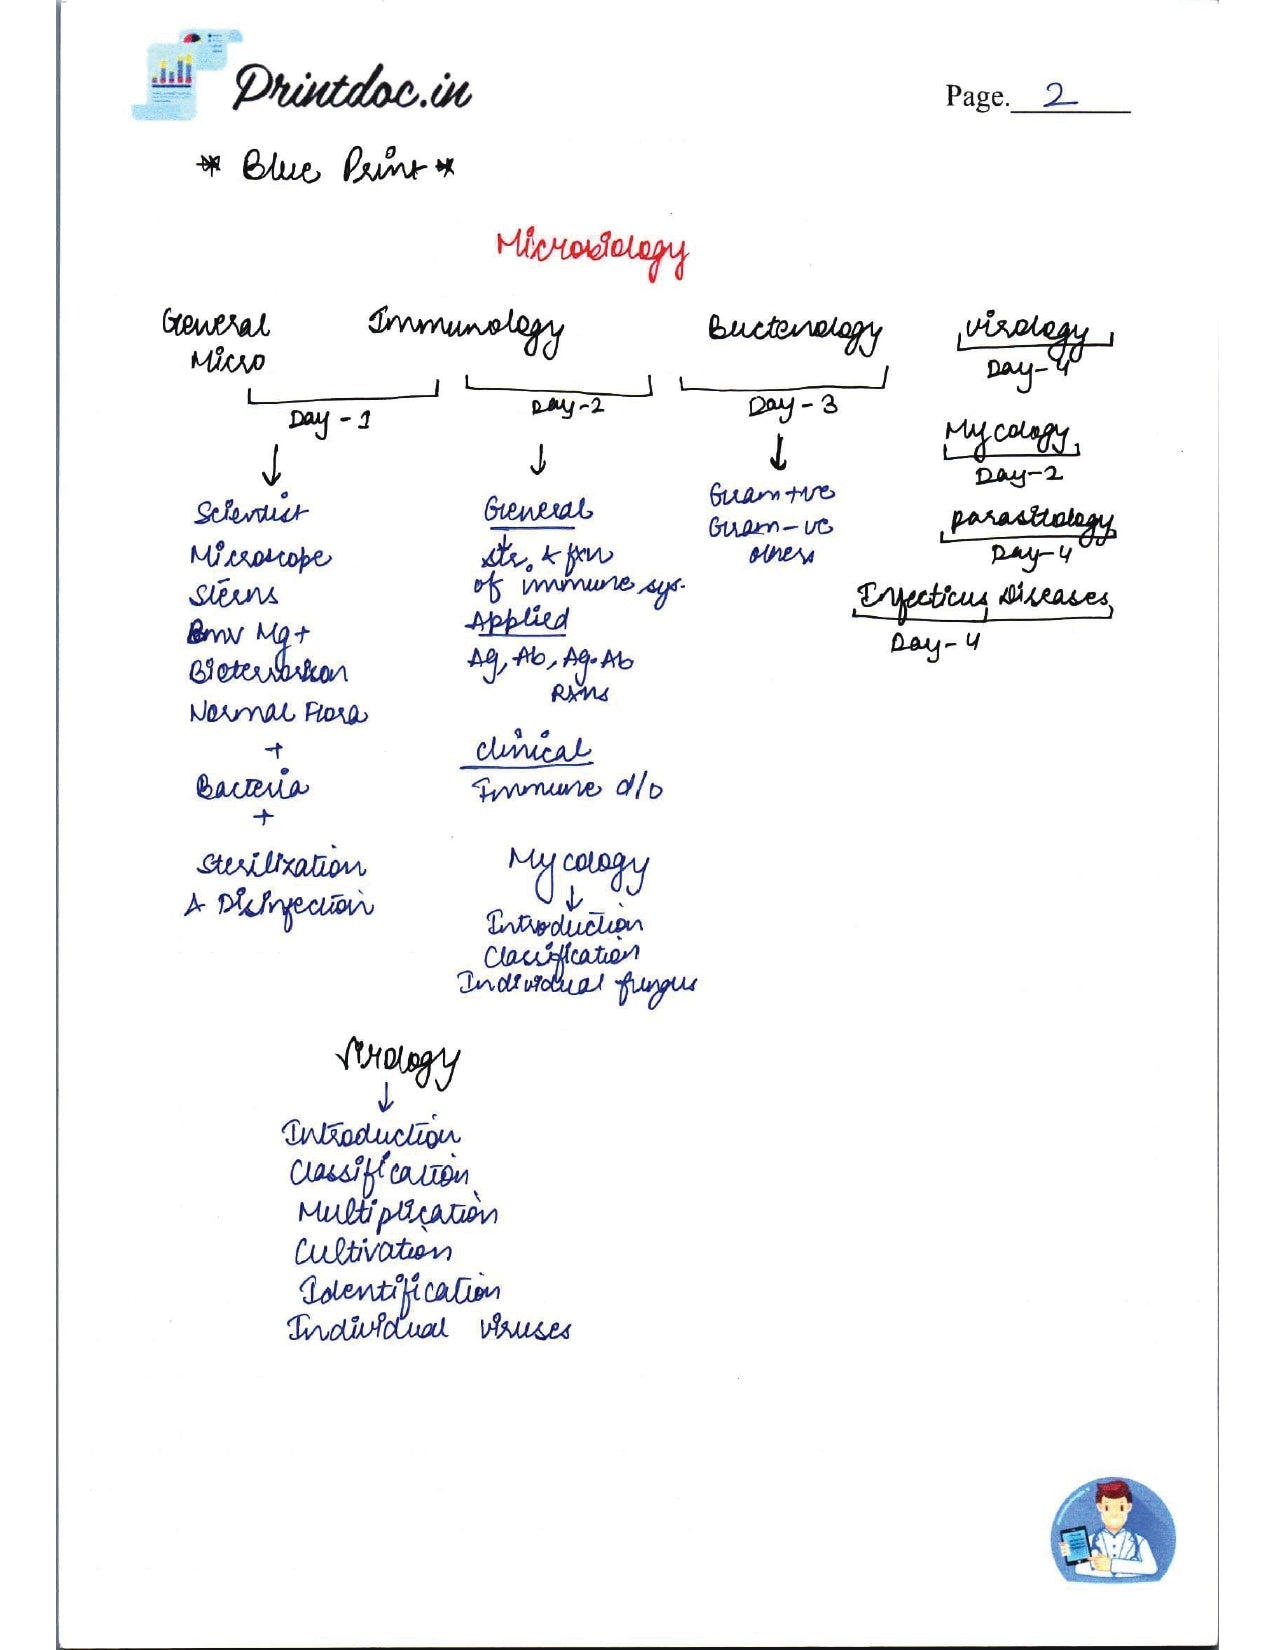 Printdoc.in
Page. 2
* Blue Print *
Microbiology
General
Micro
Day - 1
Scientist
Microscope
Steins
Bmw Mg+
Bioterrorism
Normal Flora
+
Bacteria
+
Sterilization
& Disinfection
Immunology
Day-2
General
str. & fxn
of immune sys.
Applied
Ag, Ab, Ag-Ab
RXns
Clinical
Immune d/o
Mycology
Introduction
Classification
Individual fungus
Bacteriology
Day - 3
Gram+ve
Gram-ve
others
Virology
Day-4
Mycology
Day-2
parasitology
Day-4
Infectious Diseases
Day-4
Virology
Introduction
Classification
Multiplication
Cultivation
Identification
Individual viruses